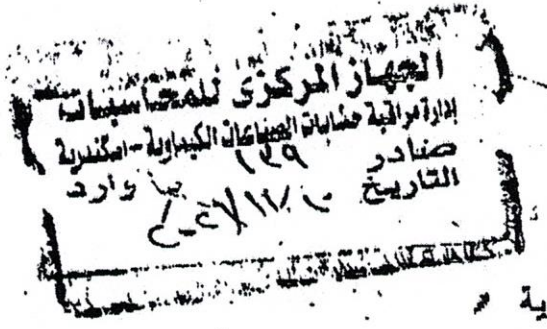 الجهاز المركزي للمحاسبات
إدارة مراقبة حسابات الصناعات الكيماوية - اسكندرية
صادر ١٣٩ وارد
التاريخ
ية